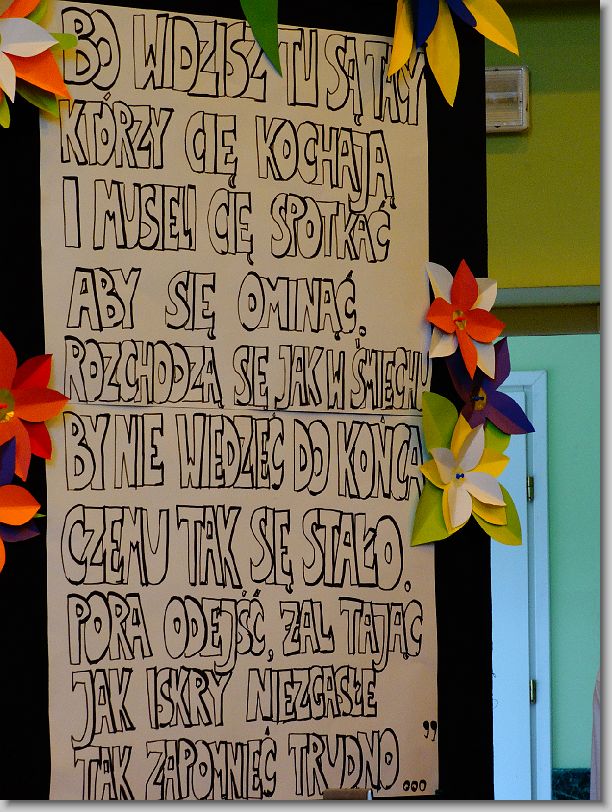 BO WIDZISZ TU SĄ TACY
KTÓRZY CIĘ KOCHAJĄ
I MUSIELI CIĘ SPOTKAĆ
ABY SIĘ OMINĄĆ.
ROZCHODZĄ SIĘ JAK W ŚMIECHU
BY NIE WIEDZIEĆ DO KOŃCA
CZEMU TAK SIĘ STAŁO.
PORA ODEJŚĆ, ŻAL TAJĄC
JAK ISKRY NIEZGASŁE
TAK ZAPOMNIEĆ TRUDNO..."